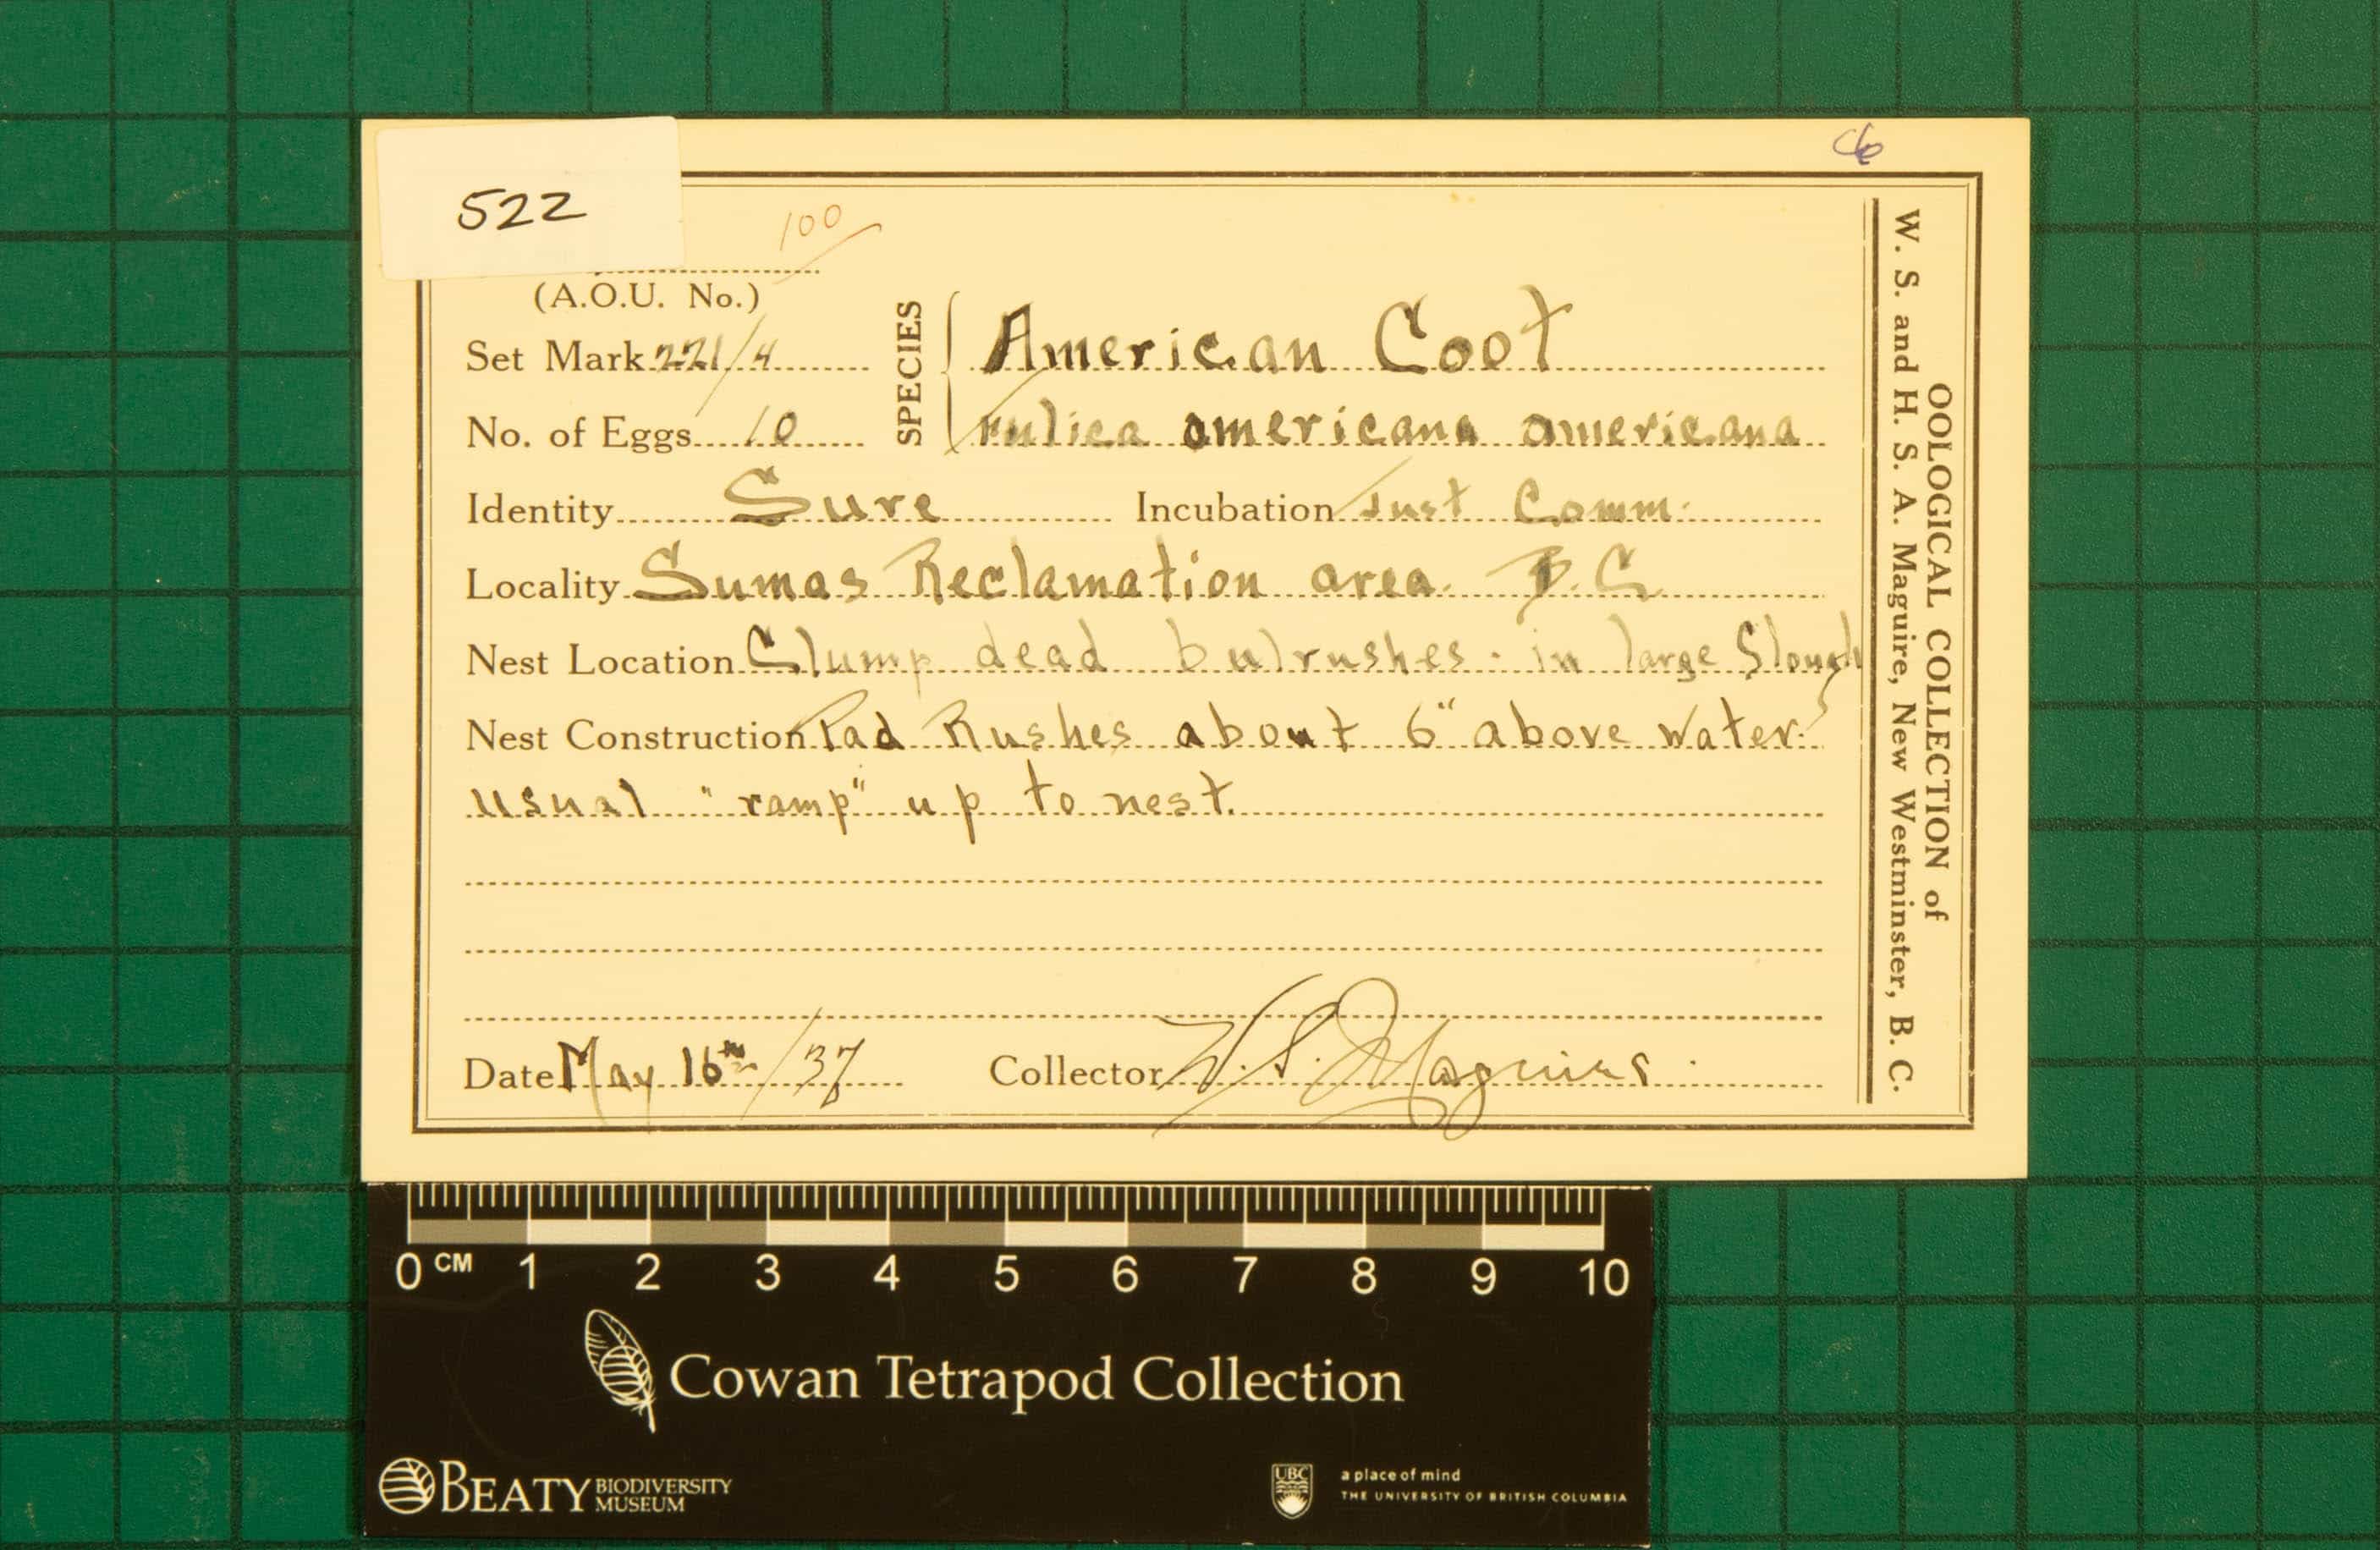 522
100
(A.O.U. No.)
Set Mark 221/4
No. of Eggs 10
SPECIES
American Coot
Fulica americana americana
Identity Sure Incubation Just Comm.
Locality Sumas Reclamation area. B.C.
Nest Location Clump dead bulrushes - in large Slough
Nest Construction Pad Rushes about 6" above water.
usual "ramp" up to nest.
Date May 16th /37 Collector W. S. Maguire.
OOLOGICAL COLLECTION of
W. S. and H. S. A. Maguire, New Westminster, B. C.
0 CM 1 2 3 4 5 6 7 8 9 10
Cowan Tetrapod Collection
BEATY BIODIVERSITY MUSEUM
UBC
a place of mind
THE UNIVERSITY OF BRITISH COLUMBIA